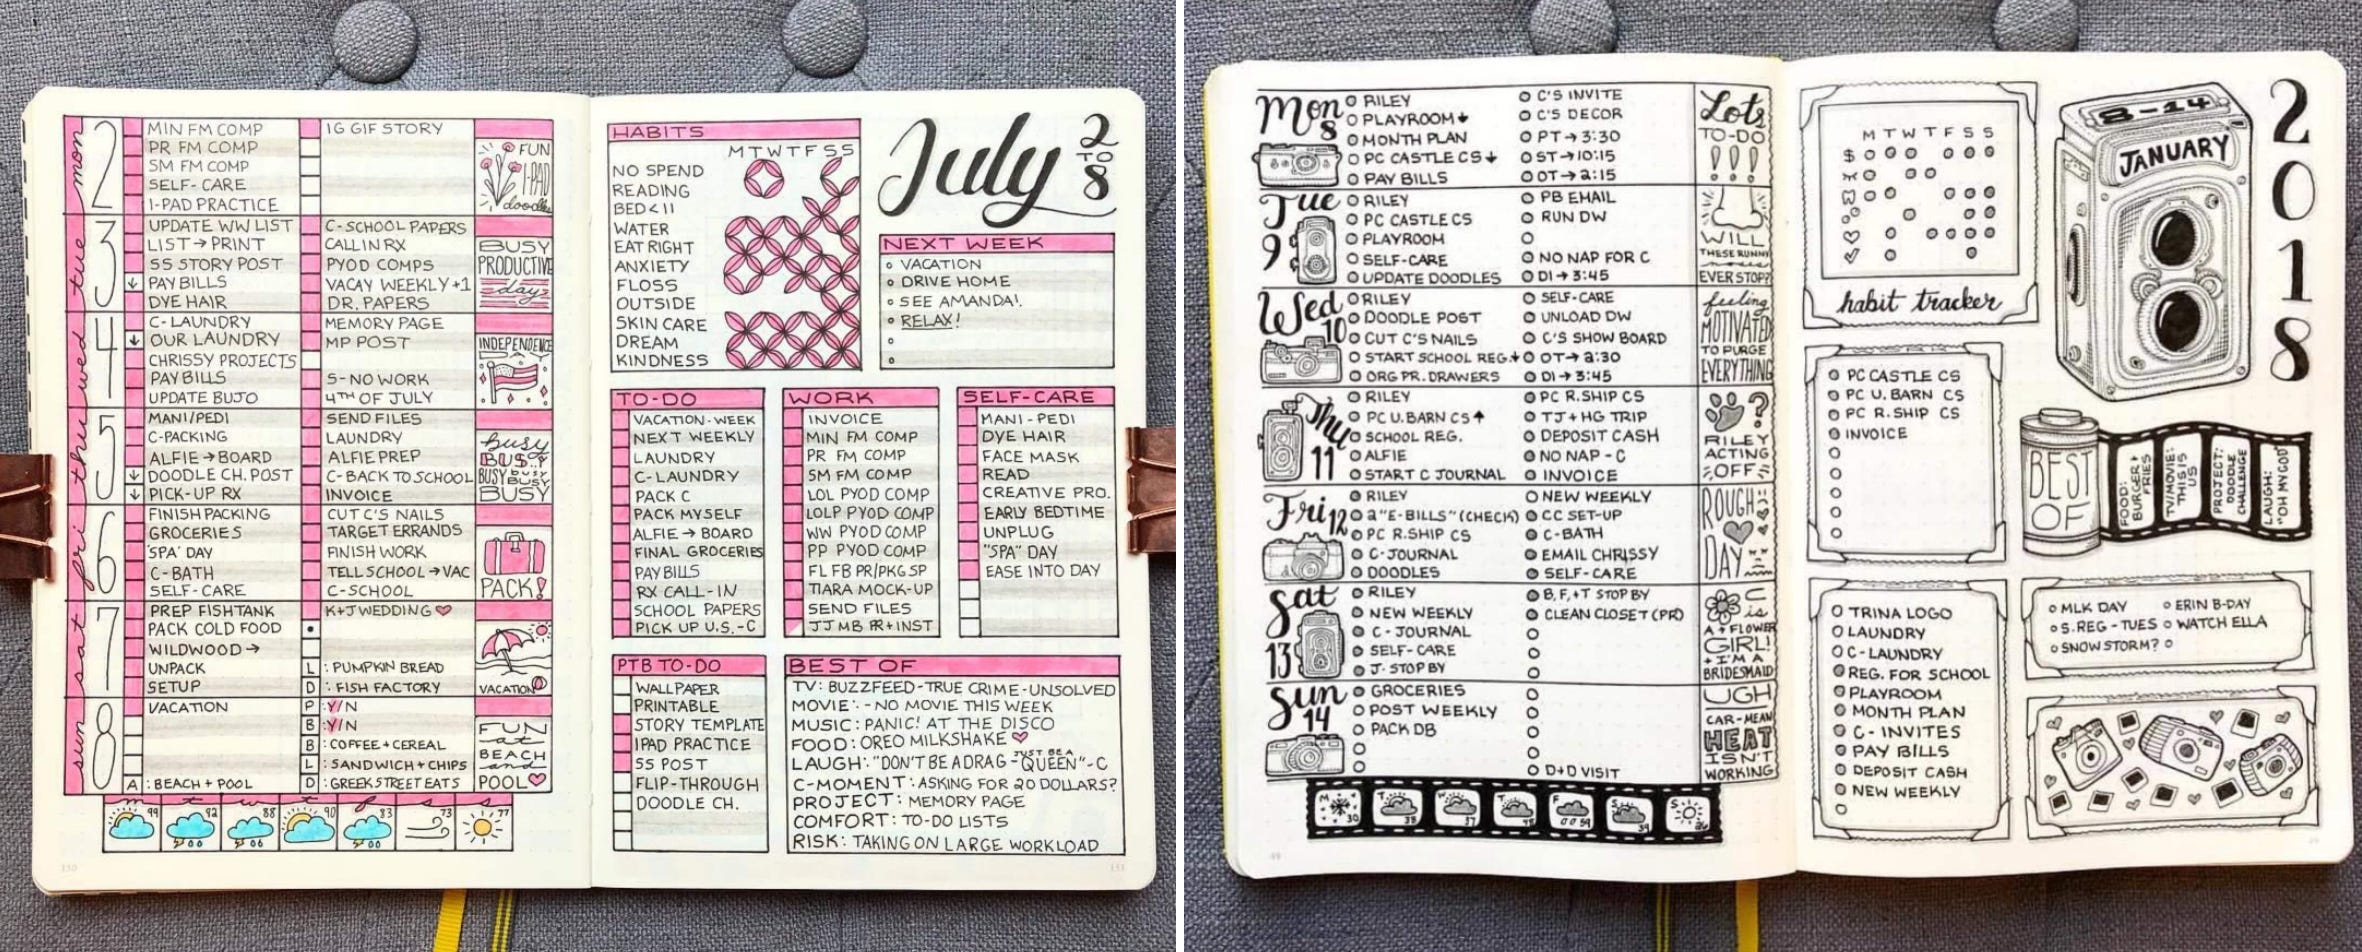 mon
2
MIN FM COMP
PR FM COMP
SM FM COMP
SELF-CARE
I-PAD PRACTICE
IG GIF STORY
FUN
I-PAD
doodles
tue
3
UPDATE WW LIST
LIST → PRINT
SS STORY POST
↓ PAY BILLS
DYE HAIR
C-SCHOOL PAPERS
CALL IN RX
PYOD COMPS
VACAY WEEKLY +1
DR. PAPERS
BUSY
PRODUCTIVE
day
wed
4
C-LAUNDRY
↓ OUR LAUNDRY
CHRISSY PROJECTS
PAY BILLS
UPDATE BUJO
MEMORY PAGE
MP POST
S-NO WORK
4TH OF JULY
INDEPENDENCE
DAY
thu
5
MANI/PEDI
C-PACKING
ALFIE → BOARD
↓ DOODLE CH. POST
↓ PICK-UP RX
SEND FILES
LAUNDRY
ALFIE PREP
C-BACK TO SCHOOL
INVOICE
busy
BUSY
BUSY busy
BUSY
BUSY
fri
6
FINISH PACKING
GROCERIES
'SPA' DAY
C-BATH
SELF-CARE
CUT C'S NAILS
TARGET ERRANDS
FINISH WORK
TELL SCHOOL → VAC
C-SCHOOL
PACK!
sat
7
PREP FISHTANK
PACK COLD FOOD
WILDWOOD →
UNPACK
SETUP
K+J WEDDING ♡
L : PUMPKIN BREAD
D : FISH FACTORY
VACATION
sun
8
VACATION
A : BEACH + POOL
P : Y/N
B : Y/N
B : COFFEE + CEREAL
L : SANDWICH + CHIPS
D : GREEK STREET EATS
FUN
at
BEACH
and
POOL ♡
m t w t f s s
99 92 88 90 83 73 77
130
HABITS
M T W T F S S
NO SPEND
READING
BED < 11
WATER
EAT RIGHT
ANXIETY
FLOSS
OUTSIDE
SKIN CARE
DREAM
KINDNESS
July
2
TO
8
NEXT WEEK
VACATION
DRIVE HOME
SEE AMANDA!
RELAX!
TO-DO
VACATION-WEEK
NEXT WEEKLY
LAUNDRY
C-LAUNDRY
PACK C
PACK MYSELF
ALFIE → BOARD
FINAL GROCERIES
PAY BILLS
RX CALL-IN
SCHOOL PAPERS
PICK UP U.S.-C
WORK
INVOICE
MIN FM COMP
PR FM COMP
SM FM COMP
LOL PYOD COMP
LOLP PYOD COMP
WW PYOD COMP
PP PYOD COMP
FL FB PR/PKG SP
TIARA MOCK-UP
SEND FILES
JJ MB PR + INST
SELF-CARE
MANI-PEDI
DYE HAIR
FACE MASK
READ
CREATIVE PRO.
EARLY BEDTIME
UNPLUG
"SPA" DAY
EASE INTO DAY
PTB TO-DO
WALLPAPER
PRINTABLE
STORY TEMPLATE
IPAD PRACTICE
SS POST
FLIP-THROUGH
DOODLE CH.
BEST OF
TV: BUZZFEED-TRUE CRIME-UNSOLVED
MOVIE: -NO MOVIE THIS WEEK
MUSIC: PANIC! AT THE DISCO
FOOD: OREO MILKSHAKE ♡
LAUGH: "DON'T BE A DRAG - JUST BE A QUEEN" -C
C-MOMENT: ASKING FOR 20 DOLLARS?
PROJECT: MEMORY PAGE
COMFORT: TO-DO LISTS
RISK: TAKING ON LARGE WORKLOAD
131
Mon
8
RILEY
PLAYROOM ↓
MONTH PLAN
PC CASTLE CS ↓
PAY BILLS
C'S INVITE
C'S DECOR
PT → 3:30
ST → 10:15
OT → 2:15
Lots
TO-DO
!!!
Tue
9
RILEY
PC CASTLE CS
PLAYROOM
SELF-CARE
UPDATE DOODLES
PB EMAIL
RUN DW
NO NAP FOR C
DI → 3:45
WILL
THESE RUNNY
noses
EVER STOP?
Wed
10
RILEY
DOODLE POST
CUT C'S NAILS
START SCHOOL REG. ↓
ORG PR. DRAWERS
SELF-CARE
UNLOAD DW
C'S SHOW BOARD
OT → 2:30
DI → 3:45
feeling
MOTIVATED
TO PURGE
EVERYTHING
Thu
11
RILEY
PC U. BARN CS ↑
SCHOOL REG.
ALFIE
START C JOURNAL
PC R. SHIP CS
TJ + HG TRIP
DEPOSIT CASH
NO NAP - C
INVOICE
?
RILEY
ACTING
OFF
Fri
12
RILEY
2 "E-BILLS" (CHECK)
PC R. SHIP CS
C-JOURNAL
DOODLES
NEW WEEKLY
CC SET-UP
C-BATH
EMAIL CHRISSY
SELF-CARE
ROUGH
DAY
Sat
13
RILEY
NEW WEEKLY
C-JOURNAL
SELF-CARE
J-STOP BY
B, F, + T STOP BY
CLEAN CLOSET (PR)
C
is
A + FLOWER
GIRL!
+ I'M A
BRIDESMAID
Sun
14
GROCERIES
POST WEEKLY
PACK DB
D+D VISIT
UGH
CAR-MEAN
HEAT
ISN'T
WORKING
M T W T F S S
30 38 37 48 59 39 26
M T W T F S S
$
habit tracker
8-14
JANUARY
2018
PC CASTLE CS
PC U. BARN CS
PC R. SHIP CS
INVOICE
BEST
OF
FOOD:
BURGER +
FRIES
TV/MOVIE:
THIS IS
US
PROJECT:
DOODLE
CHALLENGE
LAUGH:
"OH MY GOD"
TRINA LOGO
LAUNDRY
C-LAUNDRY
REG. FOR SCHOOL
PLAYROOM
MONTH PLAN
C-INVITES
PAY BILLS
DEPOSIT CASH
NEW WEEKLY
MLK DAY
ERIN B-DAY
S. REG - TUES
WATCH ELLA
SNOW STORM?